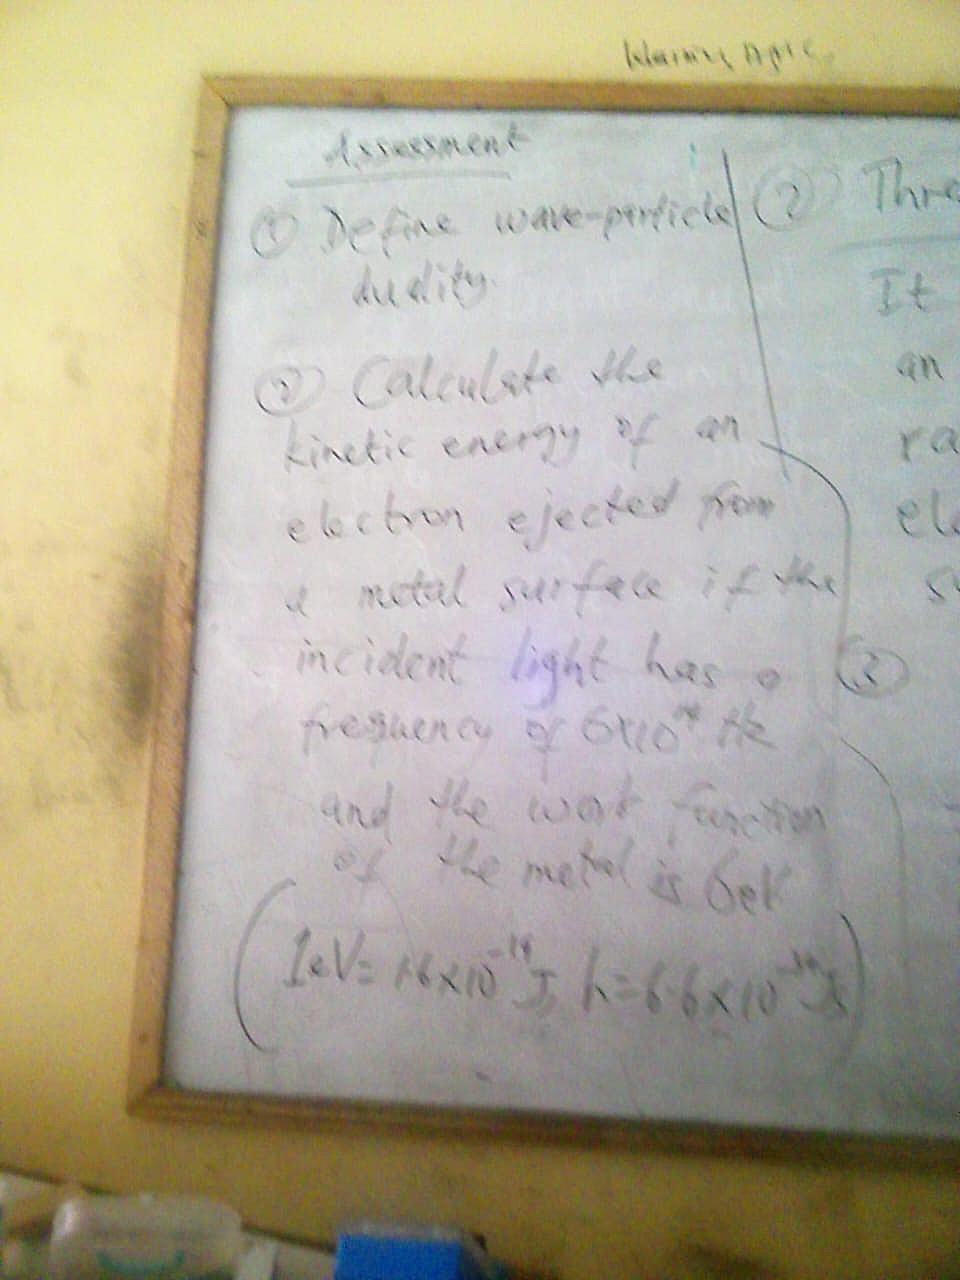 Assessment
① Define wave-particle
duality.
② Calculate the
kinetic energy of an
electron ejected from
a metal surface if the
incident light has a
frequency of 6x10¹⁴ Hz
and the work function
of the metal is 6eV
(1eV = 1.6x10⁻¹⁹J, h=6.6x10⁻³⁴Js)
② Thre
It
an
ra
ele
su
③